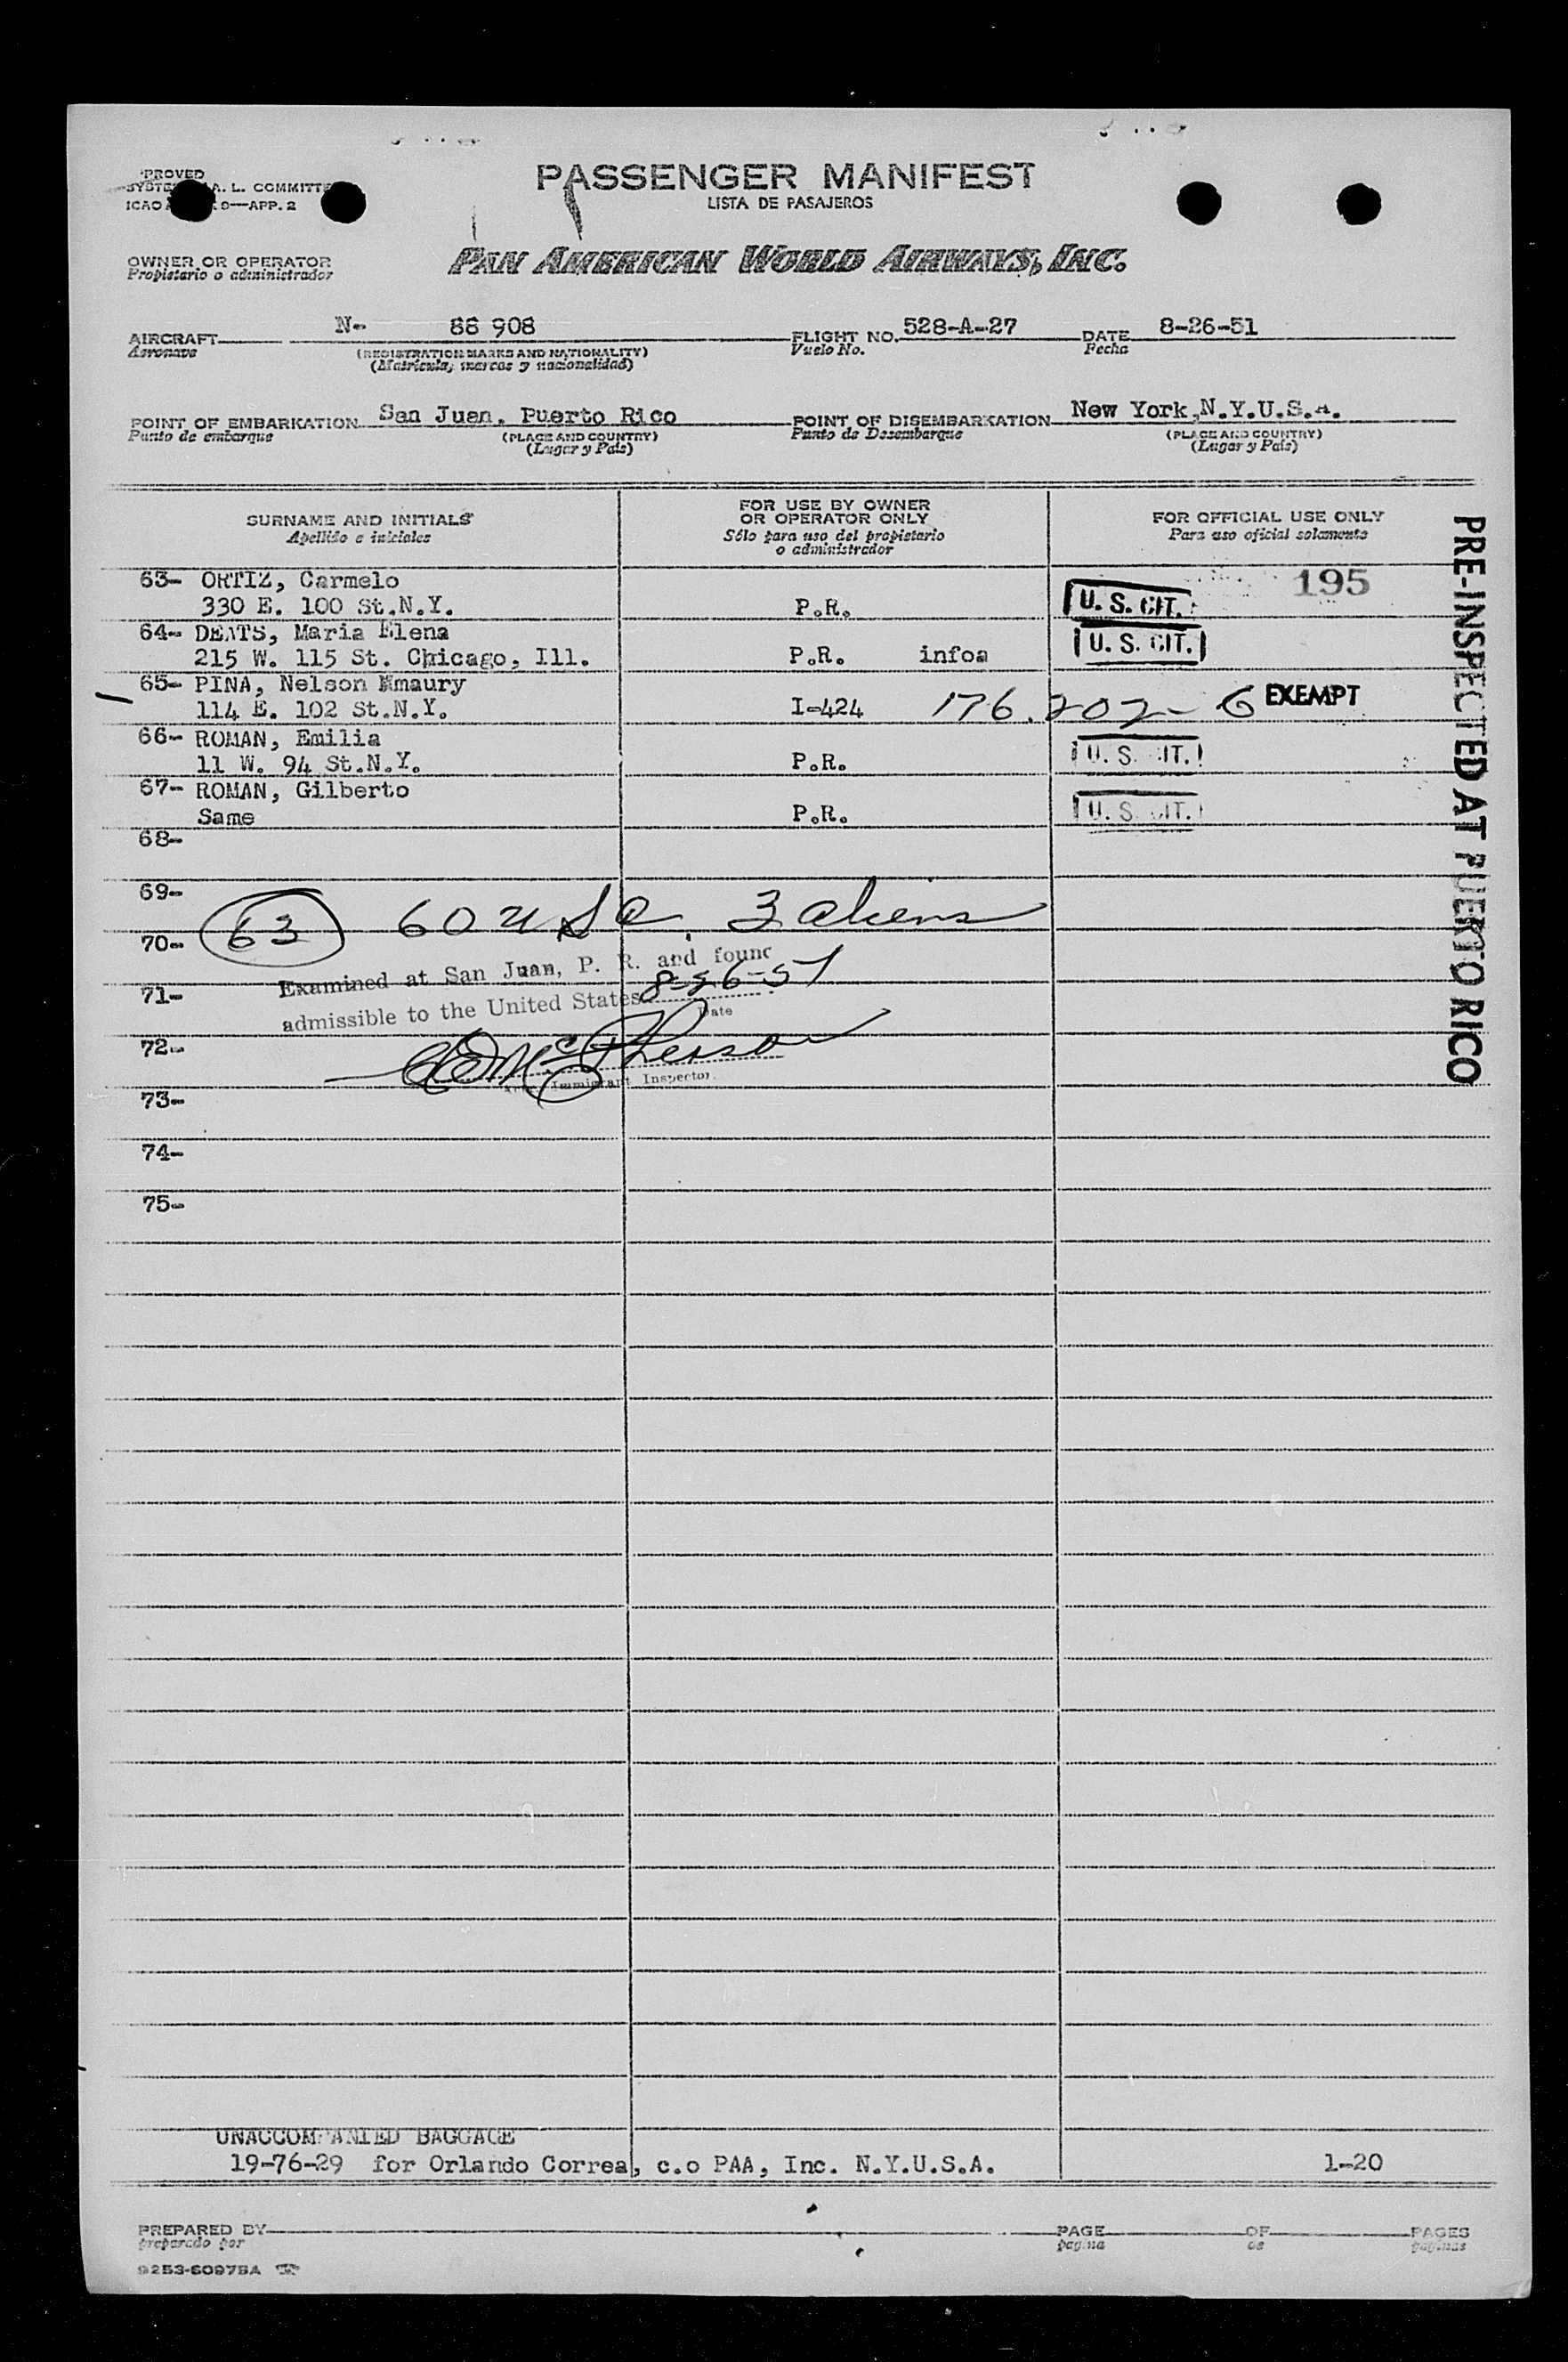 PROVED
A. L. COMMITTE
ICAO 9—APP. 2
PASSENGER MANIFEST
LISTA DE PASAJEROS
OWNER OR OPERATOR
Propietario o administrador
PAN AMERICAN WORLD AIRWAYS, INC.
AIRCRAFT N- 88 908 FLIGHT NO. 528-A-27 DATE 8-26-51
Aeronave (REGISTRATION MARKS AND NATIONALITY) Vuelo No. Fecha
(Matrícula, marcas y nacionalidad)
POINT OF EMBARKATION San Juan, Puerto Rico POINT OF DISEMBARKATION New York,N.Y.U.S.A.
Punto de embarque (PLACE AND COUNTRY) Punto de Desembarque (PLACE AND COUNTRY)
(Lugar y País) (Lugar y País)
SURNAME AND INITIALS
Apellido e iniciales
FOR USE BY OWNER
OR OPERATOR ONLY
Sólo para uso del propietario
o administrador
FOR OFFICIAL USE ONLY
Para uso oficial solamente
63- ORTIZ, Carmelo 195
330 E. 100 St.N.Y. P.R. U. S. CIT.
64- DEATS, Maria Elena
215 W. 115 St. Chicago, Ill. P.R. infoa U. S. CIT.
65- PINA, Nelson Mmaury
114 E. 102 St.N.Y. I-424 176.202-G EXEMPT
66- ROMAN, Emilia
11 W. 94 St.N.Y. P.R. U. S. CIT.
67- ROMAN, Gilberto
Same P.R. U. S. CIT.
68-
69-
63 60 USC, 3 aliens
70-
Examined at San Juan, P. R. and found
71-
admissible to the United States 8-26-51
Date
72-
McPherson
Immigrant Inspector.
73-
74-
75-
PRE-INSPECTED AT PUERTO RICO
UNACCOMPANIED BAGGAGE
19-76-29 for Orlando Correa, c.o PAA, Inc. N.Y.U.S.A. 1-20
PREPARED BY PAGE OF PAGES
preparado por pagina de paginas
9253-60975A